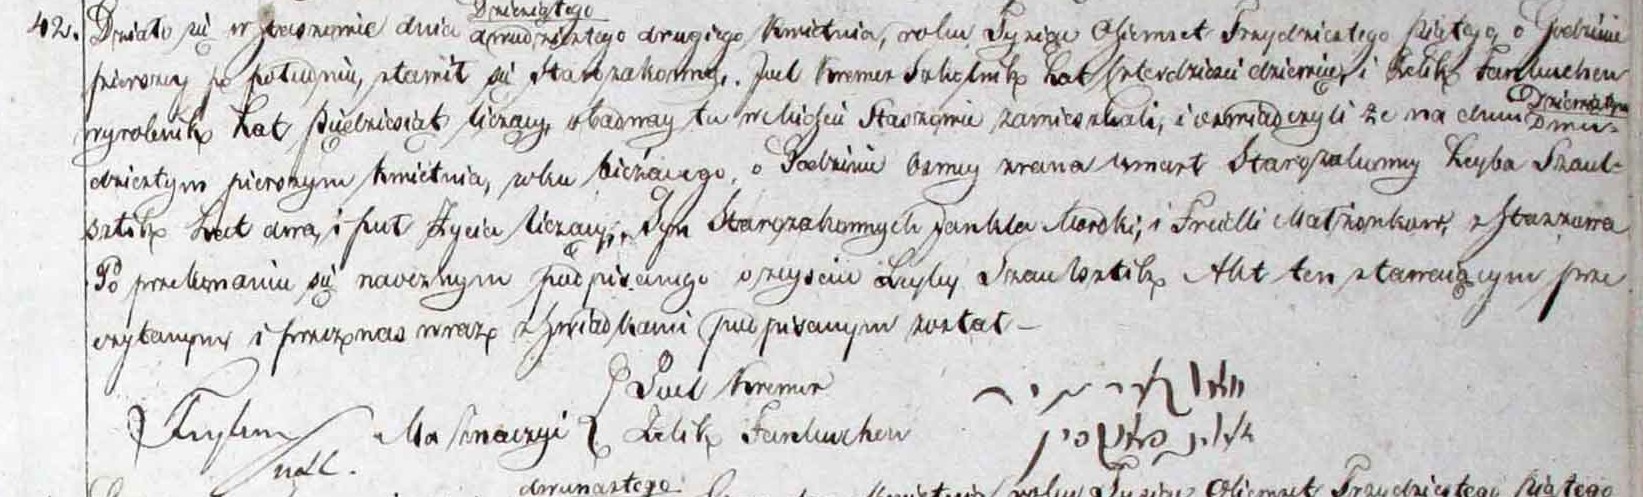 42. Działo się w Staszowie dnia Dziesiątego
dwudziestego drugiego Kwietnia, roku Tysiąc Ośmset Trzydziestego piątego o Godzinie
pierwszy po południu, stawił się Starozakonny, Juel Kremer Szkolnik Lat czterdzieści dziewięć, i Zelik Fankuchen
wyrobnik Lat Pięćdziesiąt liczący, obadway tu w Mieście Staszowie zamieszkali, i oświadczyli że na dniu Dziewiątym Dwu-
dziestym pierszym Kwietnia, roku bieżącego, o Godzinie osmy zrana umarł Starozakonny Leyba Szaul-
sztik Lat dwa, i puł Życia liczący, Syn Starozakonnych Jankla Mordki, i Freidli Małżonków, z Staszowa
Po przekonaniu się naocznym podpisanego o zejściu Leyby Szaulsztik Akt ten stawającym prze
czytanym i przez nas wraz z Swiadkami podpisanym został —
Juel Kremer
Zelik Fankuchen
nall.
dwunastego
Kwietnia, roku Tysiąc Ośmset Trzydziestego piątego